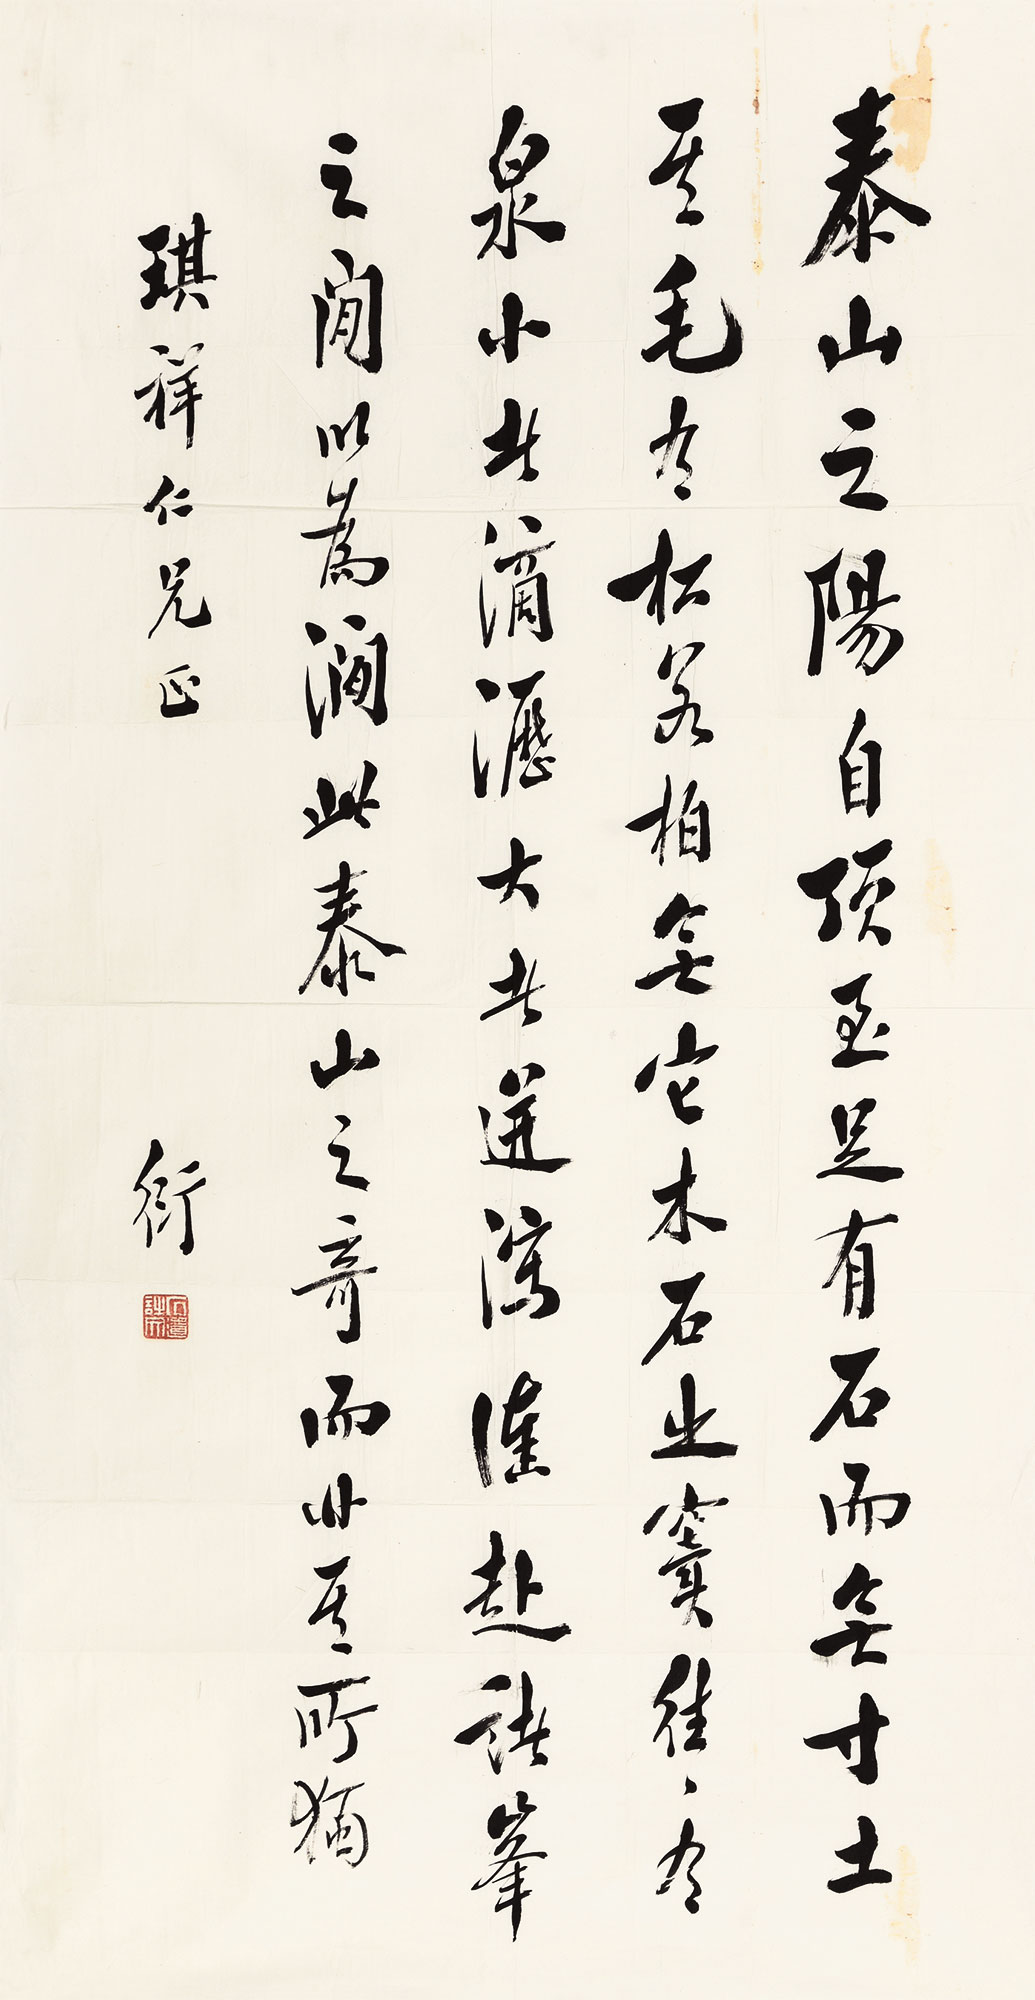 泰山之陽自頂至足有石而無寸土
其毛有松若柏無它木石之竇往往有
泉小者滴瀝大者迸瀉灌赴諸峯
之間以為澗此泰山之奇而非其所獨
琪祥仁兄正
衍